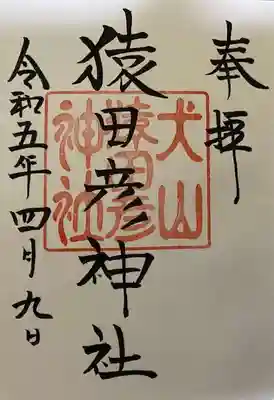 奉拝
猿田彦神社
犬山
猿田彦
神社
令和五年四月九日